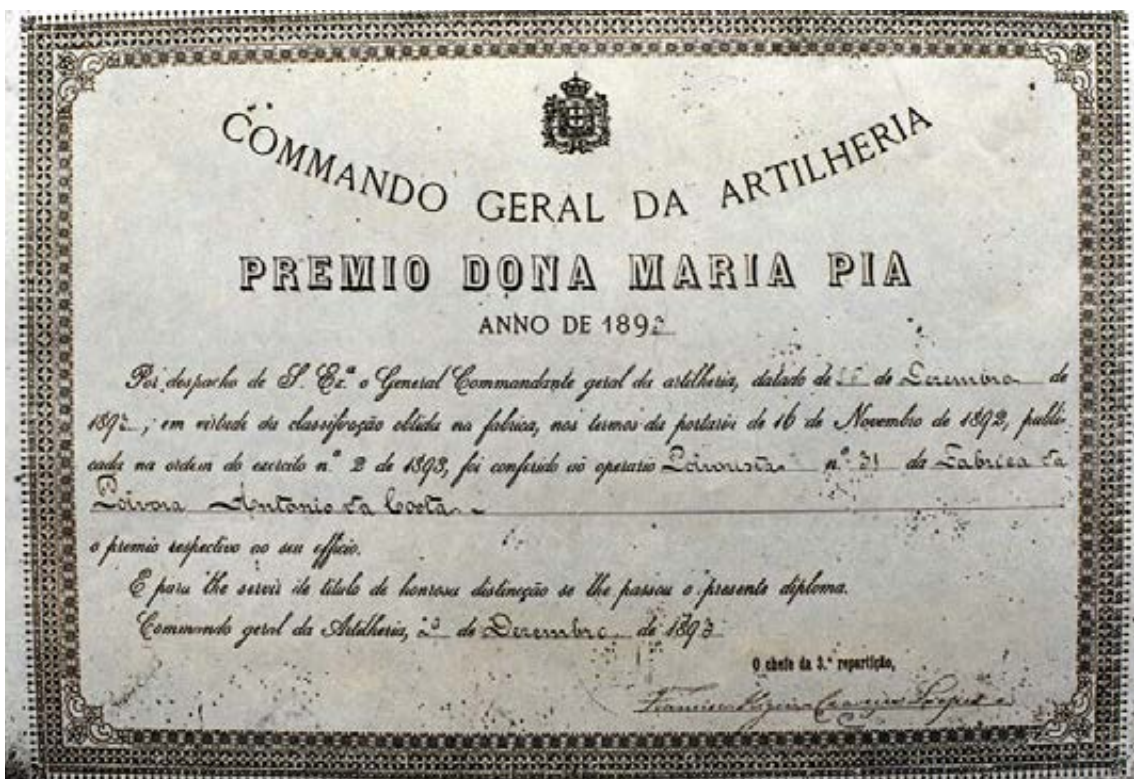 COMMANDO GERAL DA ARTILHERIA
PREMIO DONA MARIA PIA
ANNO DE 189
Por despacho de S. Ex.ª o General Commandante geral da artilheria, datado de de Dezembro de
189 ; em virtude da classificação obtida na fabrica, nos termos da portaria de 16 de Novembro de 1892, publi-
cada na ordem do exercito n.º 2 de 1893, foi conferido ao operario Polvorista n.º 31 da Fabrica da
Polvora Antonio da Costa
o premio respectivo ao seu officio.
E para lhe servir de titulo de honrosa distincção se lhe passou o presente diploma.
Commando geral da Artilheria, de Dezembro de 1893
O chefe da 3.ª repartição,
Francisco